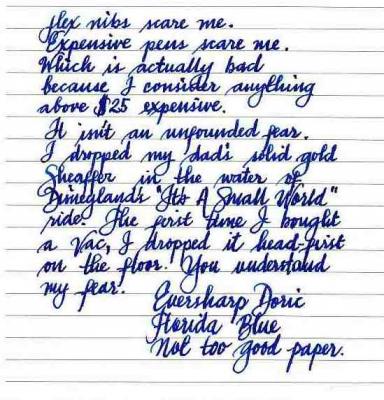 flex nibs scare me.
Expensive pens scare me.
Which is actually bad
because I consider anything
above $25 expensive.
It isn't an unfounded fear.
I dropped my dad's solid gold
Sheaffer in the water of
Disneyland's "Its A Small World"
ride. The first time I bought
a Vac, I dropped it head-first
on the floor. You understand
my fear.
Eversharp Doric
Florida Blue
Not too good paper.